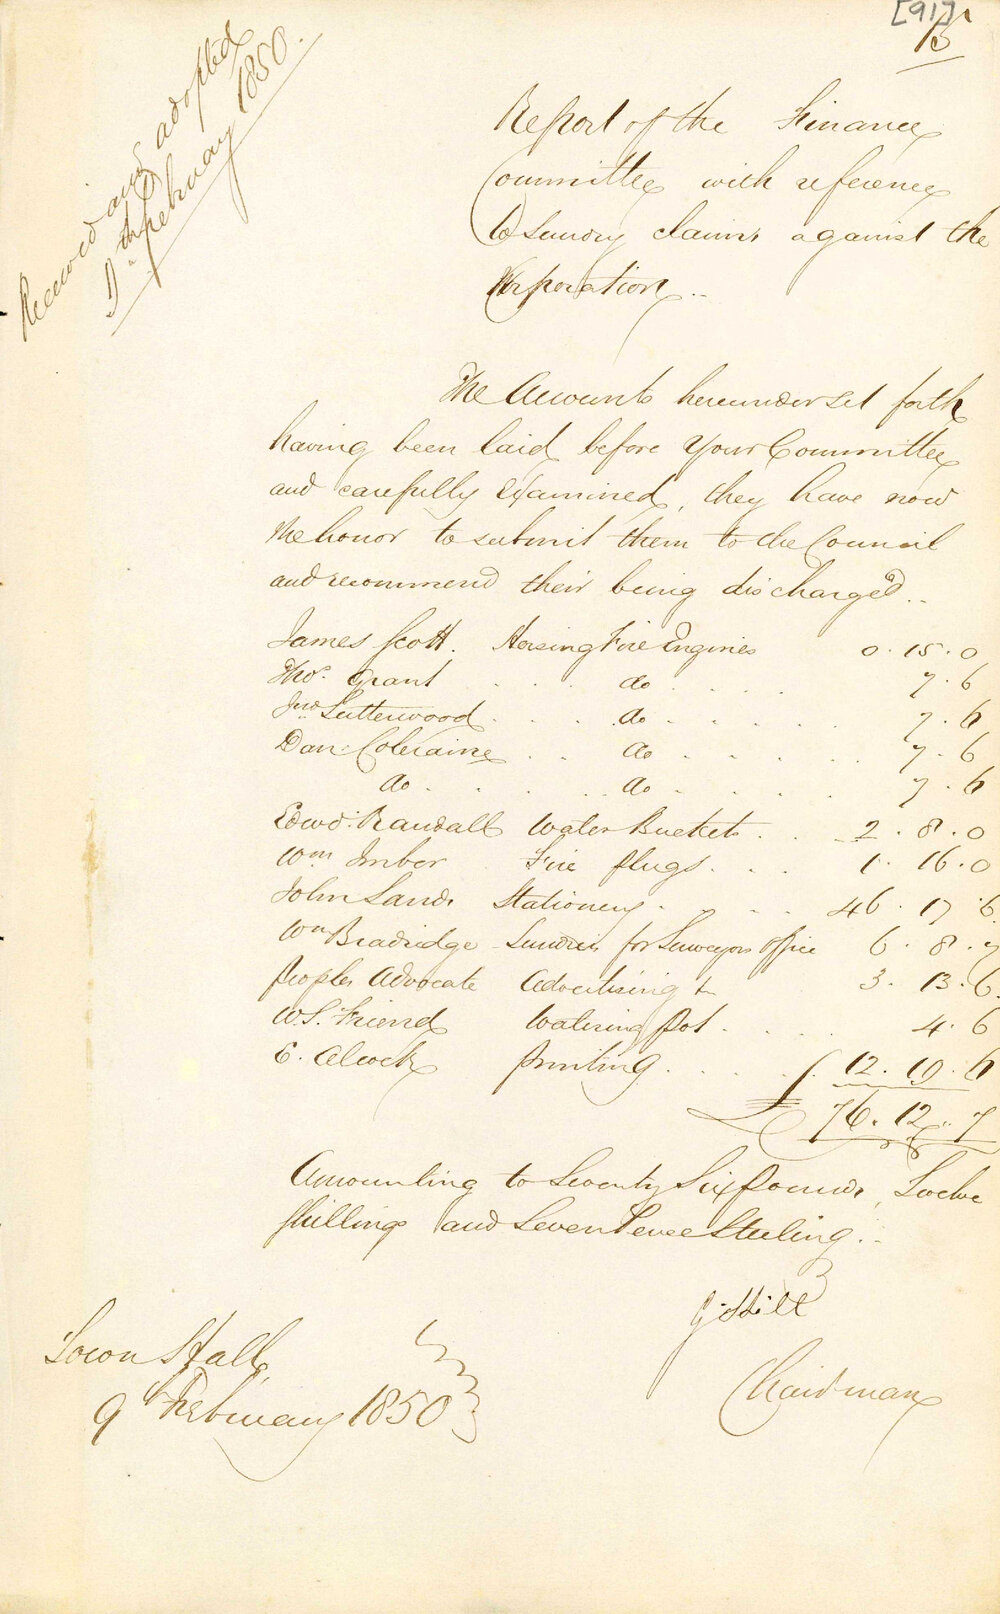 [91]
Received and adopted
9th February 1850.
Report of the Finance
Committee with reference
to sundry claims against the
Corporation..
The Accounts hereunder set forth
having been laid before Your Committee
and carefully Examined, they have now
the honor to submit them to the Council
and recommend their being discharged..
James Scott. Horsing Fire Engines 0.15.0
Thos. Grant . . . do . . . . 7.6
Jno Lutterwood . . . do . . . . 7.6
Danl Coleraine . . do . . . . 7.6
do . . . . do . . . . 7.6
Edwd. Randall Water Buckets . . 2.8.0
Wm Imber Fire plugs . . . 1.16.0
John Sands Stationery . . . . 46.17.6
Wm Bradridge Sundries for Surveyors office 6.8.7
Peoples Advocate Advertising &c 3.13.6
W.S. Friend Watering Pot . . . . 4.6
E. Alcock Printing . . . . . 12.19.6
£ 76.12.7
Amounting to Seventy Six pounds, Twelve
shillings and Seven Pence Sterling..
G. Hill
Chairman
Town Hall,
9th February 1850